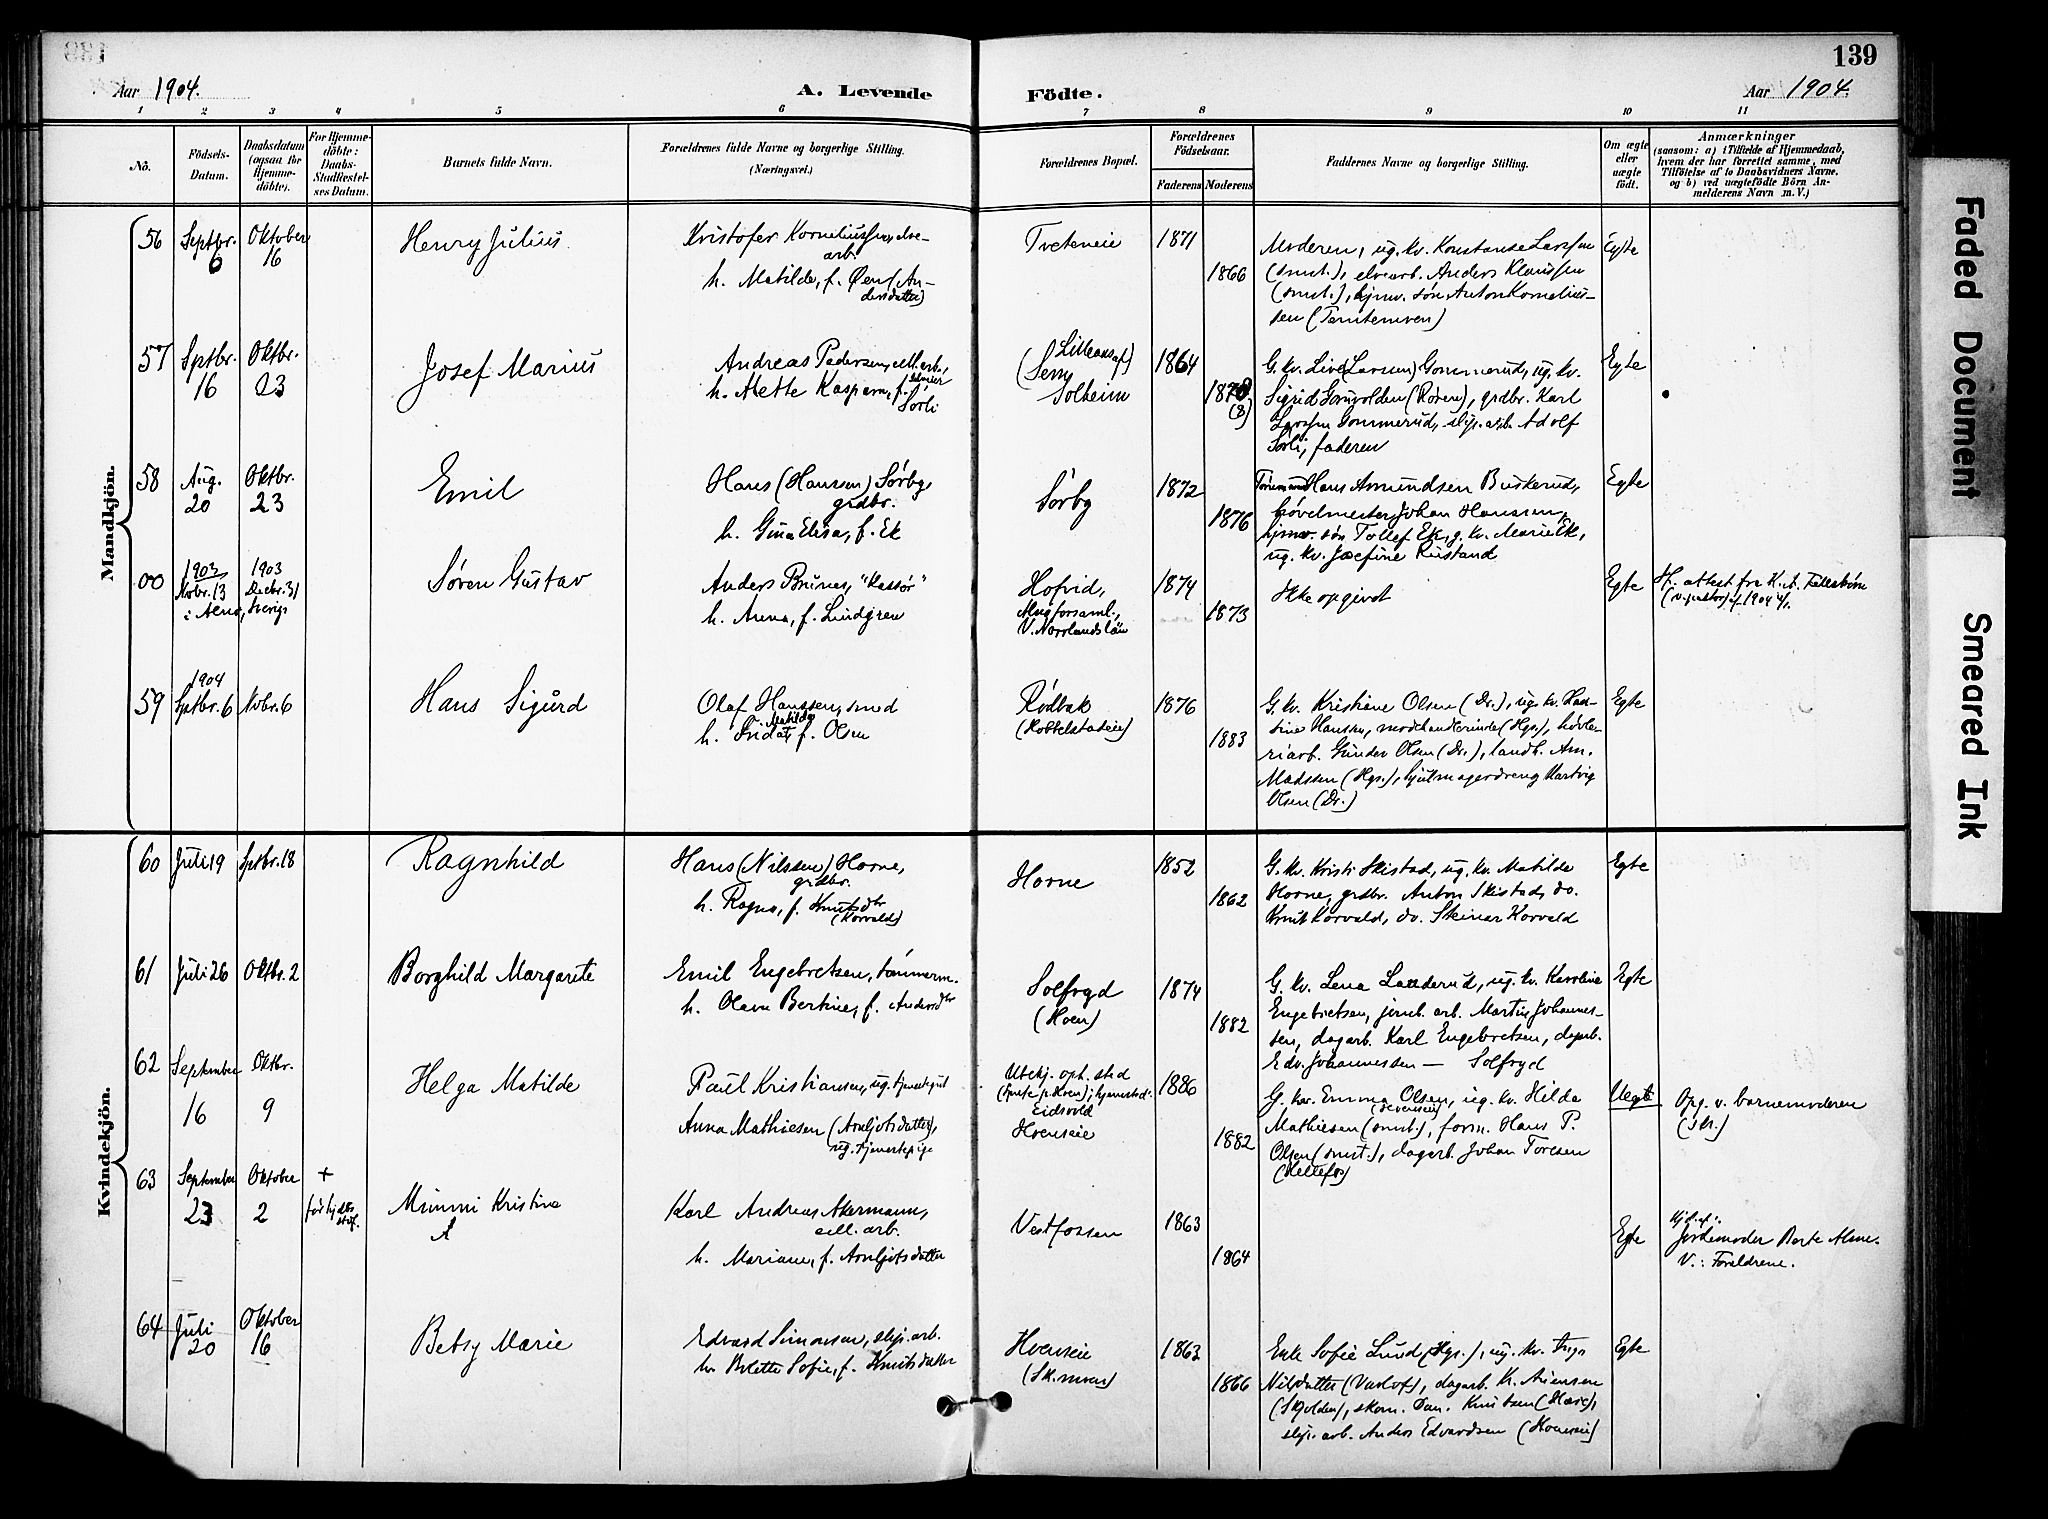 139
Aar 1904.
A. Levende Födte.
Aar 1904.
1 2 3 4 5 6 7 8 9 10 11
No.
Födsels-Datum.
Daabsdatum (ogsaa for Hjemme-döbte).
For Hjemme-döbte: Daabs-Stadfæstel-ses Datum.
Barnets fulde Navn.
Forældrenes fulde Navne og borgerlige Stilling.
(Næringsvei.)
Forældrenes Bopæl.
Forældrenes Födselsaar.
Faderens Moderens
Faddernes Navne og borgerlige Stilling.
Om ægte eller uægte födt.
Anmærkninger
(saasom: a) i Tilfælde af Hjemmedaab, hvem der har forrettet samme, med Tilföielse af to Daabsvidners Navne, og b) ved uægtefödte Börn An-melderens Navn m. V.)
Mandkjön.
56 Septbr. 6 Oktober 16 Henry Julius
Kristofer Korneliussen, elve-
arb.
h. Matilde, f. Øen (An-
dersdatter)
Tveteneie 1871 1866
Moderen, ug. kv. Konstanse Larssen
(smst.), elvearb. Anders Klaussen
(smst.), hjmv. søn Anton Kornelius-
sen (Temtemoen)
Egte
57 Sptbr. 16 Oktbr. 23 Josef Marius
Andreas Pedersen, cell. arb.,
h. Mette Kaspara, f.
Sørli
Solheim 1864 1878 (8)
G. kv. Live (Larssen) Gommerud, ug. kv.
Sigrid (Roren), grdbr. Karl
Larssen Gommerud, slip. arb. Adolf
Sørli, faderen
Egte
58 Aug. 20 Oktbr. 23 Emil
Hans (Hanssen) Sørby,
grdbr.
h. Gina Elisa, f. Ek
Sørby 1872 1876
Hans Amundsen Buskerud,
høvelmester Johan Hanssen,
hjmv. søn Tollef Ek, g. kv. Marie Ek,
ug. kv. Josefine Rustand
Egte
00 1903 Novbr. 13 1903 Decbr. 31
i Alnø, Sverige
Søren Gustav
Anders Brunes, "Kassør"
h. Anna, f. Lindgren
Hofvid,
V. Norrlandslän
1874 1873
Ikke opgivet
Egte
attest fra K. A.
59 1904 Sptbr. 6 Novbr. 6 Hans Sigurd
Olaf Hanssen, smed
Matilde
h. Frida, f. Olsen
Rødbak
1876 1883
G. kv. Kristiane Olsen (Dr.), ug. kv. Han-
sine Hanssen, modehandlerinde (Hgs.), høvle-
riarb. Gunder Olsen (Dr.), landh. Am.
Madssen (Hgs.), hjulmagerdreng Hartvig
Olsen (Dr.)
Egte
Kvindekjön.
60 Juli 19 Sptbr. 18 Ragnhild
Hans (Nilssen) Horne,
grdbr.
h. Ragna, f. Knutsdtr
(Korvald)
Horne 1852 1862
G. kv. Kristi Skistad, ug. kv. Matilde
Horne, grdbr. Anton Skistad, do.
Knut Korvald, do. Steinar Korvald
Egte
61 Juli 26 Oktbr. 2 Borghild Margarete
Emil Engebretsen, tømmerm.
h. Olava Bertine, f. Andersdtr
Solfryd
(Hoen)
1874 1882
G. kv. Lena Lauderud, ug. kv. Karoline
Engebretsen, jernb. arb. Martin Johannes-
sen, dagarb. Karl Engebretsen, dagarb.
Edv. Johannessen — Solfryd
Egte
62 September 16 Oktbr. 9 Helga Matilde
Paul Kristiansen, ug. tjenestegut
Anna Mathiesen (Arnljotsdatter),
ug. tjenestepige
Ubekj. oph. sted
Eidsvold
Hoenseie
1886 1882
G. kv. Emma Olsen, ug. kv. Hilda
Mathiesen (smst.), form. Hans P.
Olsen (smst.), dagarb. Johan Toresen
(Hellefos)
Uegte
Opg. v. barnemoderen
63 September 23 Oktober 2 +
før hjdbs
stdf.
Mimmi Kristina
Karl Andreas Akermann,
cell. arb.
h. Mariane, f. Arnljotsdatter
Vestfossen 1863 1864
Egte
Hjd. af:
Jordemoder Berte Alme.
V.: Foreldrene.
64 Juli 20 Oktober 16 Betsy Marie
Edvard Simonsen, slip. arb.
h. Bolette Sofie, f. Knutsdatter
Hoenseie
(Sk. moen)
1863 1866
Enke Sofie Lund (Hgs.), ug. kv. Inga
Nilsdatter (Varlof), dagarb. K. Arensen
(Skjolden), skom. Dan. Knutsen (Hære),
slip. arb. Anders Edvardsen (Hoenseie)
Egte
Faded Document
Smeared Ink